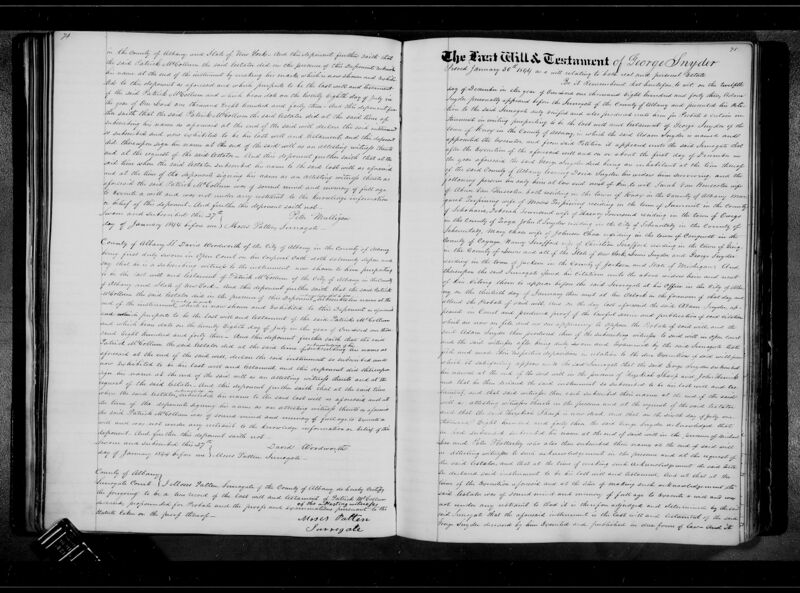 74
in the County of Albany and State of New York. And this deponent further saith that
the said Patrick McCollum the said testator did in the presence of this Deponent subscribe
his name at the end of the instrument by making his mark which is now shown and exhibited
to this deponent as aforesaid and which purports to be the last will and testament
of the said Patrick McCollum and which bears date on the twenty Eighth day of July in
the year of Our Lord one thousand Eight hundred and forty three. And this deponent fur-
ther saith that the said Patrick McCollum the said testator did at the said time of
subscribing his name as aforesaid at the end of the said will declare the said instrument
so subscribed and now exhibited to be his last will and testament and this deponent
did thereupon sign his name at the end of the said will as an attesting witness thereto
and at the request of the said testator. And this deponent further saith that at the
said time when the said testator subscribed his name to the said last will as aforesaid
and at the time of the deponent signing his name as an attesting witness thereto as
aforesaid the said Patrick McCollum was of sound mind and memory of full age
to execute a will and was not under any restraint to the knowledge information
or belief of the deponent. And further this deponent saith not.
Sworn and subscribed this 27th Peter Mulligan
day of January 1844 before me Moses Patten Surrogate
County of Albany SS. David Woodworth of the City of Albany in the County of Albany
being first duly sworn in Open Court on his Corporal Oath doth solemnly depose and
say that he is a subscribing witness to the instrument now shown to him purporting
to be the last will and testament of Patrick McCollum of the City of Albany in the County
of Albany and State of New York. And this deponent further saith that the said Patrick
McCollum the said testator did in the presence of this Deponent subscribe his name at the
end of the instrument which is now shown and exhibited to this Deponent as aforesaid
and which purports to be the last will and testament of the said Patrick McCollum
and which bears date on the twenty Eighth day of July in the year of Our Lord one thou-
sand Eight hundred and forty three. And this deponent further saith that the said
Patrick McCollum the said testator did at the said time of subscribing his name as
aforesaid at the end of the said will, declare the said instrument so subscribed and
now exhibited to be his last will and testament, and this deponent did thereupon
sign his name at the end of the said will as an attesting witness thereto and at the
request of the said testator. And this deponent further saith that at the said time
when the said testator subscribed his name to the said last will as aforesaid and at
the time of the deponent signing his name as an attesting witness thereto as aforesaid
the said Patrick McCollum was of sound mind and memory of full age to execute a
will and was not under any restraint to the knowledge information or belief of the
deponent. And further this deponent saith not.
Sworn and subscribed this 27th David Woodworth
day of January 1844 before me Moses Patten Surrogate
County of Albany
Surrogate Court I Moses Patten Surrogate of the County of Albany do hereby certify
the foregoing to be a true record of the last will and testament of Patrick McCollum
deceased, propounded for Probate and the proofs and examinations of the attesting witnesses pursuant to the
Statute taken on the proof thereof
Moses Patten
Surrogate
75
The Last Will & Testament of George Snyder
Proved January 30th 1844 as a will relating to both real and personal Estate
Be it Remembered that heretofore to wit on the twelfth
day of December in the year of Our Lord one thousand eight hundred and forty three, Adam
Snyder personally appeared before the Surrogate of the County of Albany and presented his Peti-
tion to the said Surrogate duly verified and also produced unto him for Probate a certain in-
strument in writing purporting to be the last will and testament of George Snyder of the
town of Knox in the County of Albany in which the said Adam Snyder is named and
appointed the Executor and from said Petition it appeared unto the said Surrogate that
after the Execution of the aforesaid will and on or about the first day of December in
the year aforesaid the said George Snyder died being an inhabitant at the time thereof
of the said County of Albany leaving Snyder his widow him surviving, and the
following persons his only heirs at law and next of kin to wit, Sarah Van Benscoter wife
of Abram Van Benscoter both residing in the town of Knox in the County of Albany Mar-
garet wife of Moses residing in the town of Summit in the County
of Schoharie, Townsend wife of Townsend residing in the town of Owego
in the County of Tioga, John Snyder residing in the City of Schenectady in the County of
Schenectady, Mary wife of Johnson residing in the town of Conquest in the
County of Cayuga, Nancy Strafford wife of Christian Strafford residing in the town of
in the County of and all of the State of New York, Snyder and George Snyder
residing in the town of Jackson in the County of Jackson and State of Michigan. And
thereupon the said Surrogate issued his Citation unto the above widow heirs and next
of kin citing them to appear before the said Surrogate at his Office in the City of Alba-
ny on the thirtieth day of January then next at ten O'clock in the forenoon of that day and
attend the Probate of said will, and on the day last aforesaid the said Adam Snyder ap-
peared in Court and produced proof of the lawful service and publication of said citation
which are now on file, and no one appearing to oppose the Probate of said will and the
said Adam Snyder then produced two of the subscribing witnesses to said will in Open Court
and the said witnesses after being duly sworn and examined by the said Surrogate hath
given and made their respective depositions in relation to the due Execution of said will from
which it satisfactorily appears unto the said Surrogate that the said George Snyder subscribed
his name at the end of the said will in the presence of Hezekiah Sharp and John
and that he then declared the said instrument so subscribed to be his last will and tes-
tament, and that said witnesses then each subscribed their names at the end of the said
will as attesting witnesses thereto in the presence and at the request of the said testator
and that the said Hezekiah Sharp is now dead, and that on the day of July one
thousand Eight hundred and forty three the said George Snyder acknowledged that
he had so subscribed his name at the end of said will in the presence of
and Peter who also then subscribed their names at the end of said will
as attesting witnesses to such acknowledgement in the presence and at the request of
the said testator, and that at the time of making such acknowledgement the said testa-
tor declared said instrument to be his last will and testament. And that at the
time of the Execution aforesaid and at the time of making such acknowledgement the
said testator was of sound mind and memory of full age to execute a will and was
not under any restraint. And it is therefore adjudged and determined by the
said Surrogate that the aforesaid instrument is the last will and testament of the said
George Snyder deceased by him Executed and published in due form of law. And it